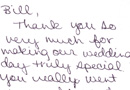 Bill,
Thank you so
very much for
making our wedding
day truly special
you really went